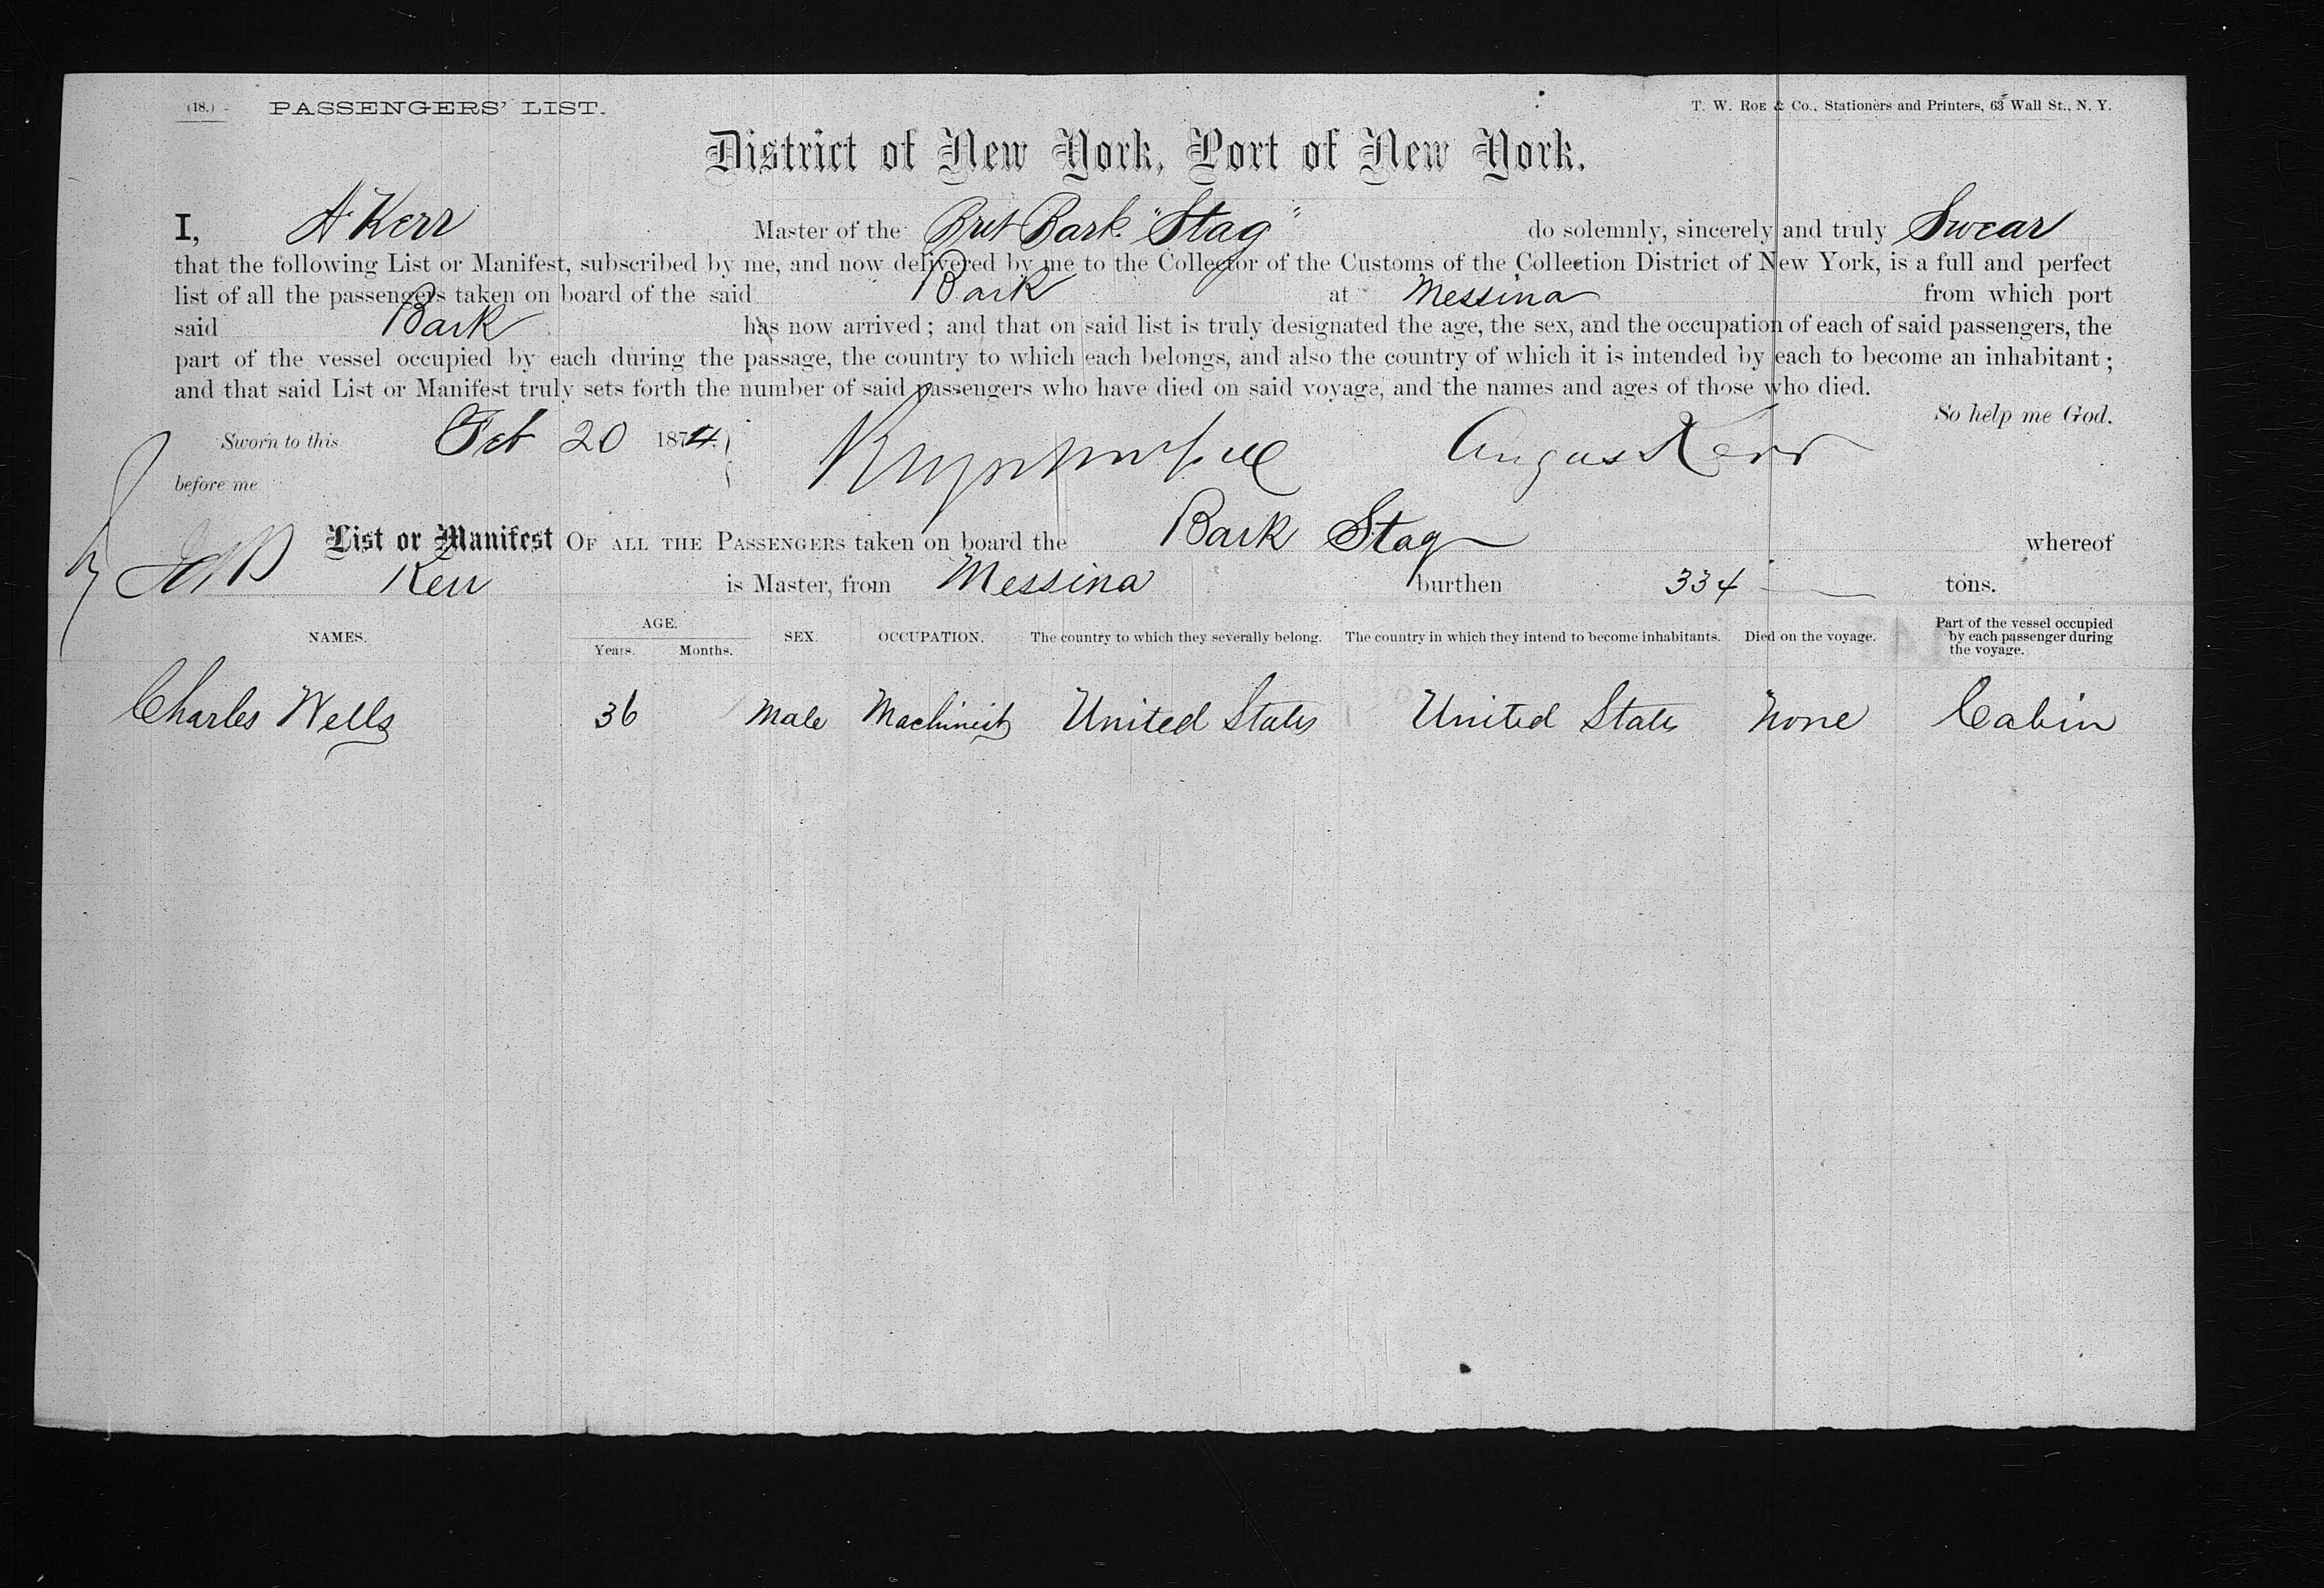 (18.) PASSENGERS' LIST. T. W. Roe & Co., Stationers and Printers, 63 Wall St., N. Y.
District of New York, Port of New York.
I, A Kerr Master of the Brit Bark "Stag" do solemnly, sincerely and truly Swear
that the following List or Manifest, subscribed by me, and now delivered by me to the Collector of the Customs of the Collection District of New York, is a full and perfect
list of all the passengers taken on board of the said Bark at Messina from which port
said Bark has now arrived; and that on said list is truly designated the age, the sex, and the occupation of each of said passengers, the
part of the vessel occupied by each during the passage, the country to which each belongs, and also the country of which it is intended by each to become an inhabitant;
and that said List or Manifest truly sets forth the number of said passengers who have died on said voyage, and the names and ages of those who died.
So help me God.
Sworn to this Feb 20 1874 Angus Kerr
before me
List or Manifest OF ALL THE PASSENGERS taken on board the Bark Stag whereof
Kerr is Master, from Messina burthen 334 tons.
NAMES. AGE. Years. Months. SEX. OCCUPATION. The country to which they severally belong. The country in which they intend to become inhabitants. Died on the voyage. Part of the vessel occupied by each passenger during the voyage.
Charles Wells 36 Male Machinist United States United States None Cabin